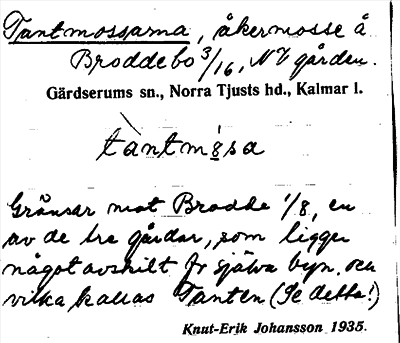 Tantmossarna, åkermosse å
Broddebo 3/16, NV gården.
Gärdserums sn., Norra Tjusts hd., Kalmar l.
tàntmósa
Gränsar mot Brodde 1/8, en
av de tre gårdar, som ligger
något avskilt fr själva byn. och
vilka kallas Tanten (Se detta!)
Knut-Erik Johansson 1935.